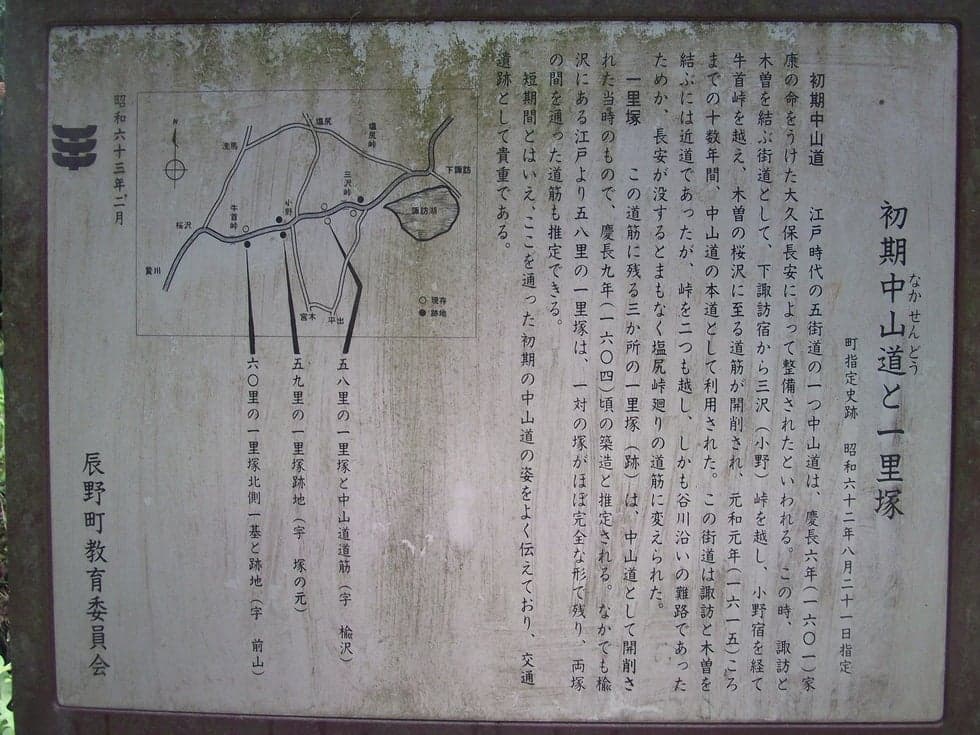 初期中山道と一里塚
なか せんどう
町指定史跡　昭和六十二年八月二十一日指定
初期中山道　江戸時代の五街道の一つ中山道は、慶長六年(一六〇一)家
康の命をうけた大久保長安によって整備されたといわれる。この時、諏訪と
木曽を結ぶ街道として、下諏訪宿から三沢(小野)峠を越し、小野宿を経て
牛首峠を越え、木曽の桜沢に至る道筋が開削され、元和元年(一六一五)ころ
までの十数年間、中山道の本道として利用された。この街道は諏訪と木曽を
結ぶには近道であったが、峠を二つも越し、しかも谷川沿いの難路であった
ためか、長安が没するとまもなく塩尻峠廻りの道筋に変えられた。
一里塚　この道筋に残る三か所の一里塚(跡)は、中山道として開削さ
れた当時のもので、慶長九年(一六〇四)頃の築造と推定される。なかでも楡
沢にある江戸より五八里の一里塚は、一対の塚がほぼ完全な形で残り、両塚
の間を通った道筋も推定できる。
短期間とはいえ、ここを通った初期の中山道の姿をよく伝えており、交通
遺跡として貴重である。
下諏訪
諏訪湖
塩尻峠
塩尻
三沢峠
小野
牛首峠
洗馬
桜沢
贄川
宮木
平出
N
○現存
●跡地
五八里の一里塚と中山道道筋(字　楡沢)
五九里の一里塚跡地(字　塚の元)
六〇里の一里塚北側一基と跡地(字　前山)
昭和六十三年、二月
辰野町教育委員会